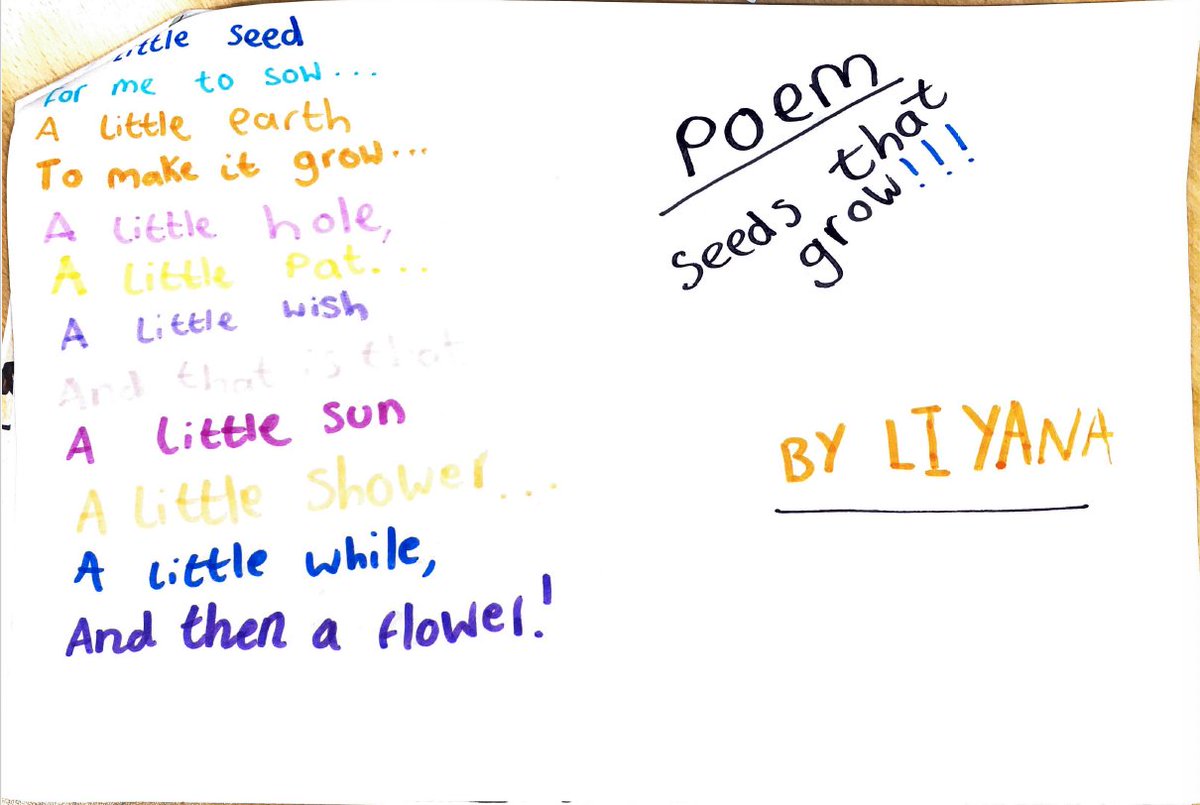 little seed
for me to sow...
A little earth
To make it grow...
A little hole,
A little Pat...
A little wish
And that is that
A little sun
A little Shower...
A little while,
And then a flower!
Poem
Seeds that
grow!!!
BY LIYANA